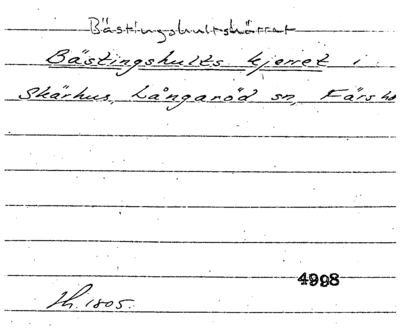 Bästingshultskärret
Bästingshults kjerret i
Skärhus, Långaröd sn, Färs hd
4998
Sk. 1805.